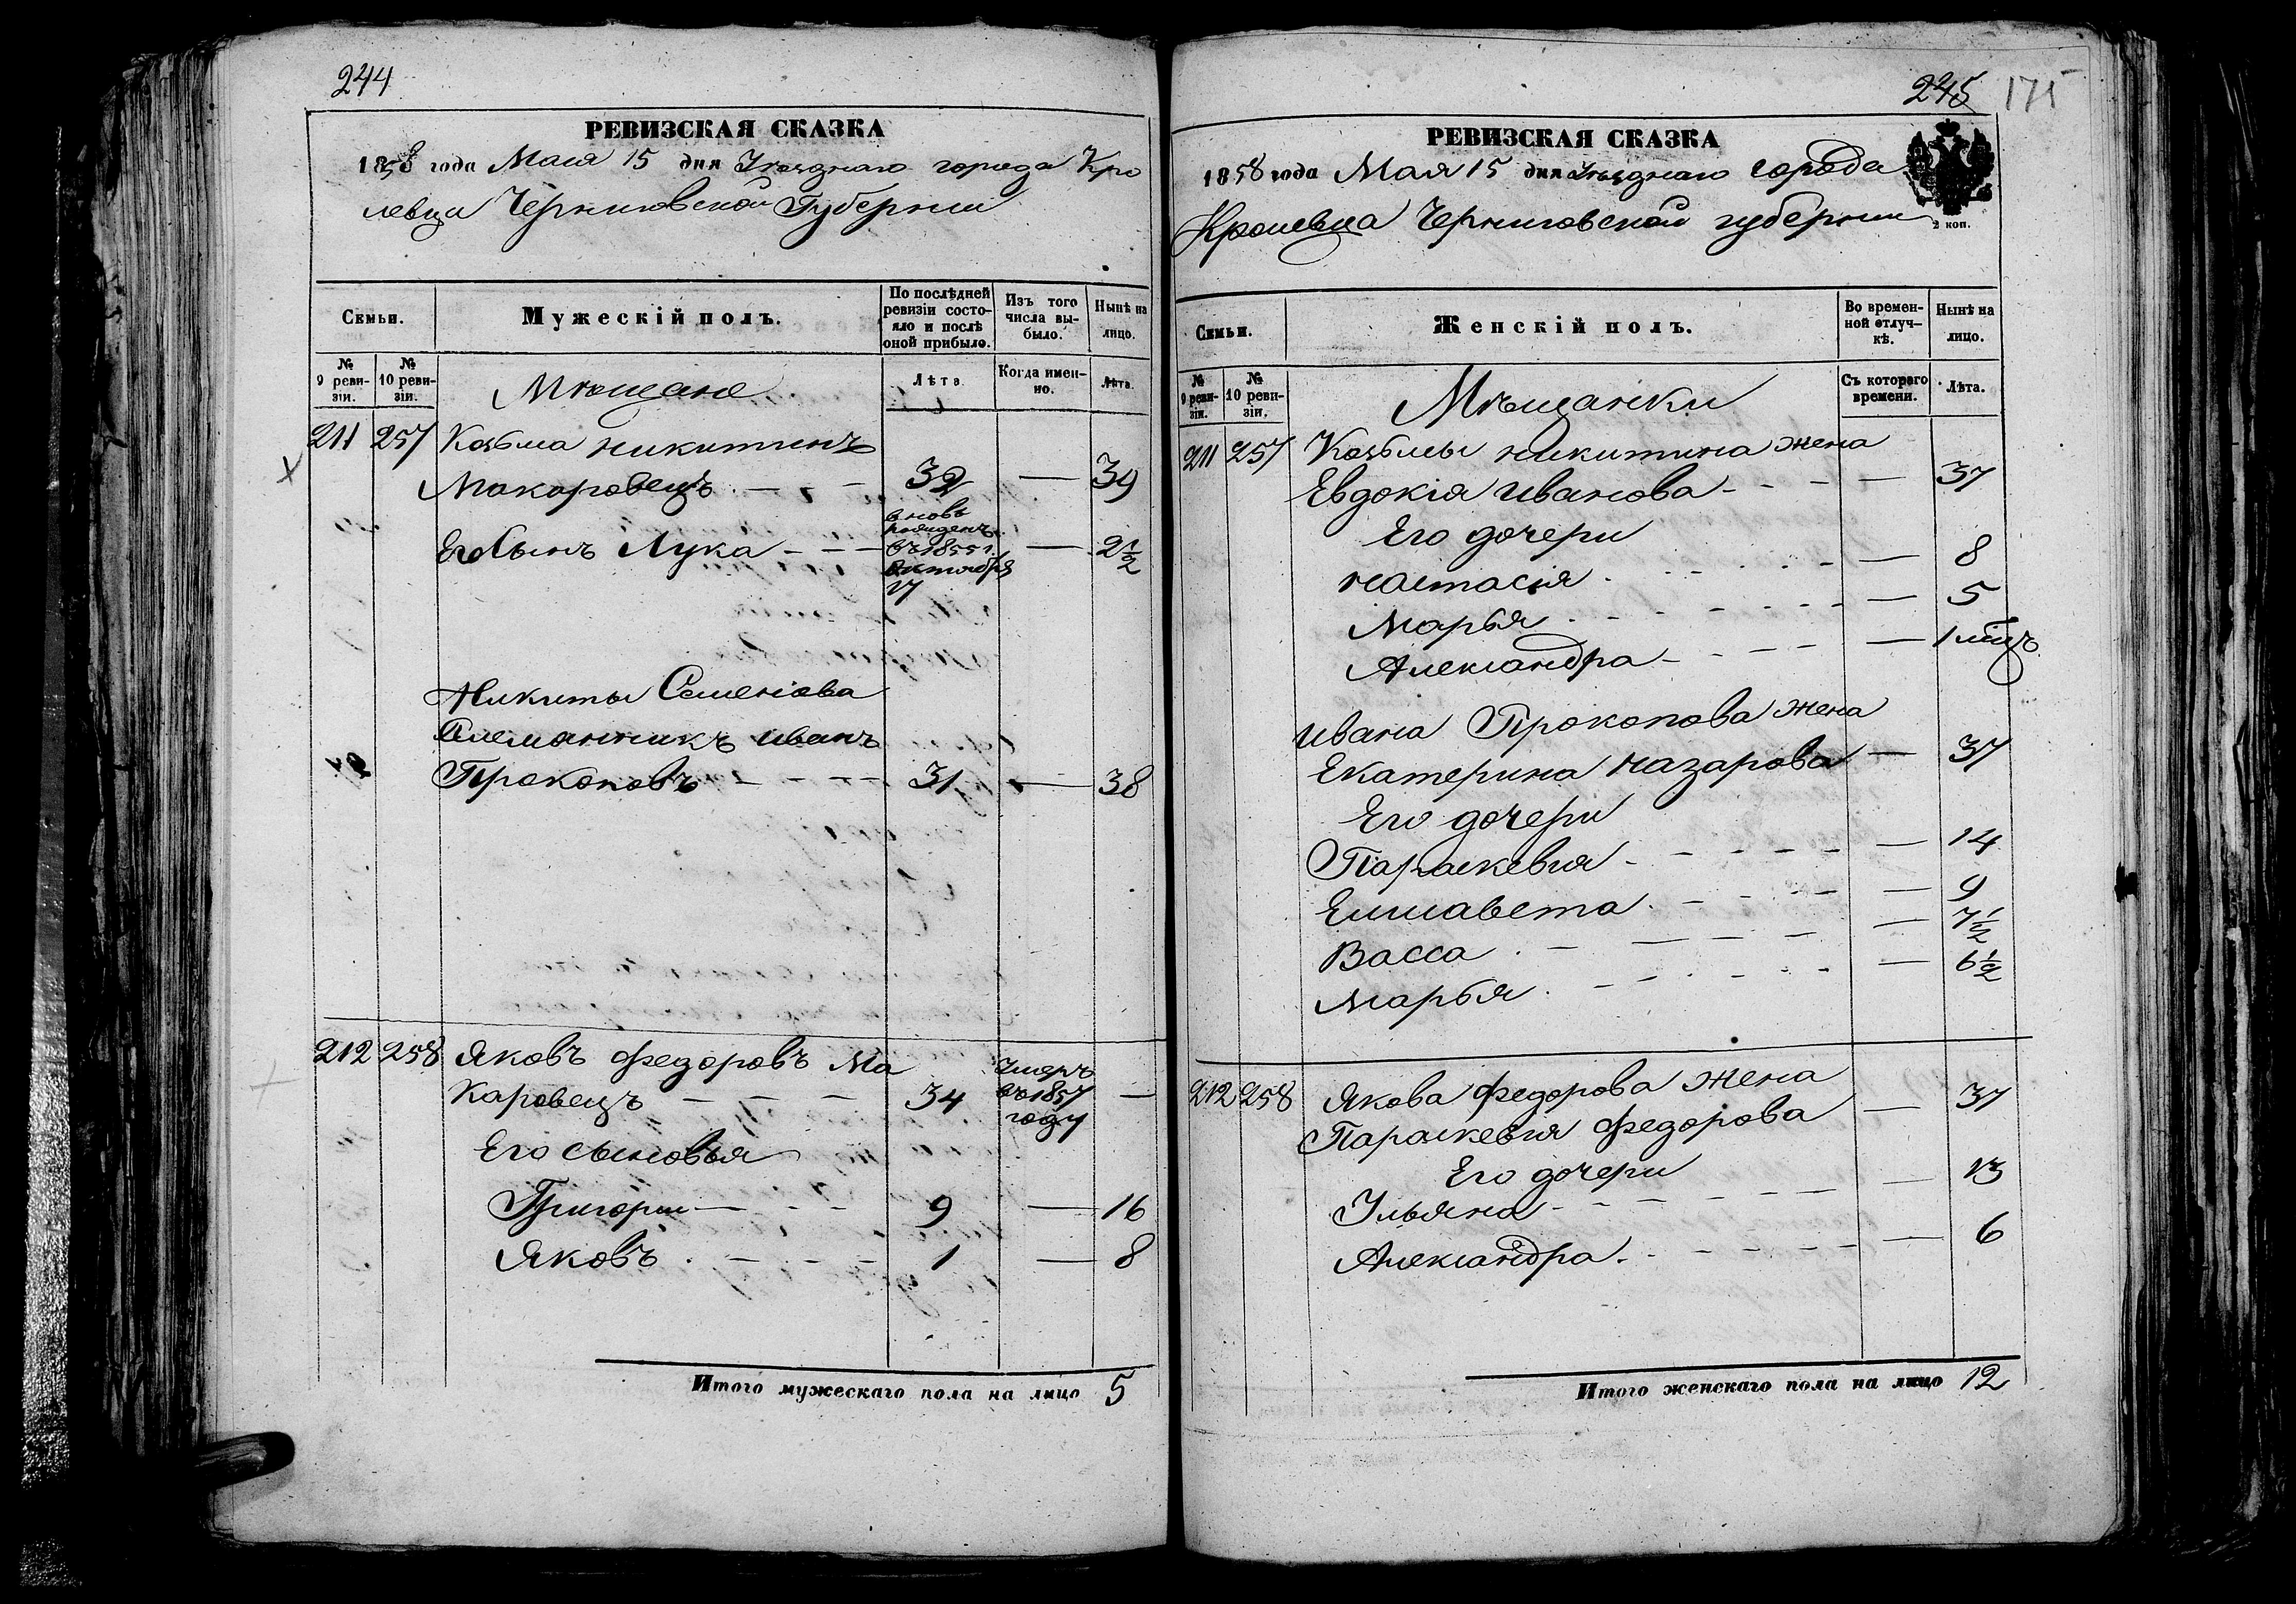 244
РЕВИЗСКАЯ СКАЗКА
1858 года Мая 15 дня Уѣзднаго города Кро
левца Черниговской Губернии
Семьи.
Мужескій полъ.
По послѣдней ревизіи состо-яло и послѣ оной прибыло.
Изъ того числа вы-было.
Нынѣ на лицо.
№ 9 реви-зіи.
№ 10 реви-зіи.
Мѣщане
Лѣта
Когда имен-но.
Лѣта.
211 257 Козьма Никитинъ
Макаровецъ 32 — 39
Его Сынъ Лука вновь рожденъ въ 1855 г. Октября 17 — 2 1/2
Никиты Семенова
Племянникъ Иванъ
Прокоповъ 31 — 38
212 258 Яковъ Федоровъ Ма
каровецъ 34 Умеръ въ 1857 году —
Его сыновья
Григорий 9 — 16
Яковъ 1 — 8
Итого мужескаго пола на лицо 5
245 175
РЕВИЗСКАЯ СКАЗКА
1858 года Мая 15 дня Уѣзднаго города
Кролевца Черниговской губернии
2 коп.
Семьи.
Женскій полъ.
Во времен-ной отлуч-кѣ.
Нынѣ на лицо.
№ 9 реви-зіи.
№ 10 реви-зіи.
Мѣщанки
Съ котораго времени.
Лѣта.
211 257 Козьмы Никитина жена
Евдокія Иванова — 37
Его дочери
Настасія — 8
Марья — 5
Александра — 1 мѣсцъ
Ивана Прокопова жена
Екатерина Назарова — 37
Его дочери
Параскевия — 14
Елисавета — 9
Васса — 7 1/2
Марья — 6 1/2
212 258 Якова Федорова жена
Параскевия Федорова — 37
Его дочери
Ульяна — 13
Александра — 6
Итого женскаго пола на лицо 12